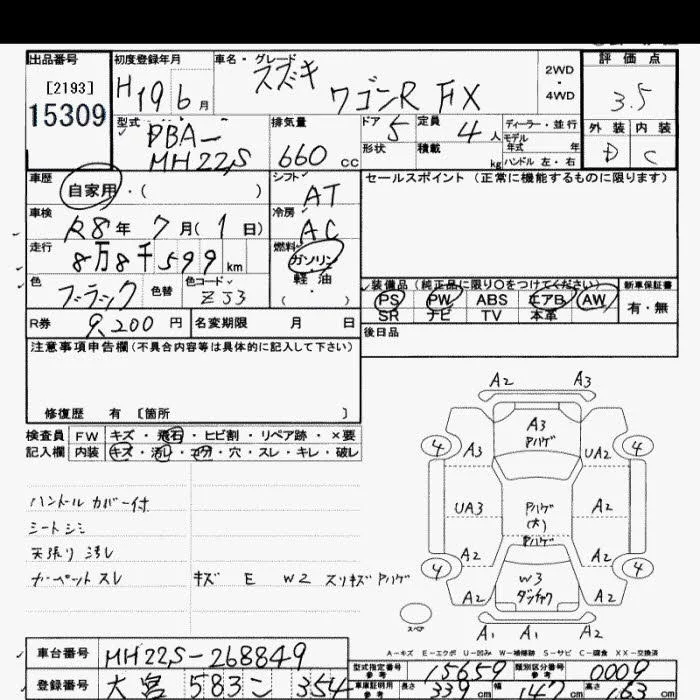 出品番号 初度登録年月 車名・グレード 評価点
[2193] H19 6月 スズキ 2WD・4WD 3.5
15309 ワゴンR FX
型式 排気量 ドア 定員 ディーラー・並行 外装 内装
DBA-MH22S 660cc 5 4人 モデル年式 年 D C
形状 積載 kg ハンドル 左・右
車歴 シフト セールスポイント(正常に機能するものに限ります)
自家用・( ) AT
車検 冷房
R8年 7月(1日) AC
走行 燃料
8万8千599km ガソリン・軽油・( )
色 色替 色コード 装備品(純正品に限り○をつけてください) 新車保証書
ブラック ZJ3 PS PW ABS エアB AW 有・無
SR ナビ TV 本革
R券 9,200円 名変期限 月 日 後日品
注意事項申告欄(不具合内容等は具体的に記入して下さい)
修復歴 有 [箇所 ]
検査員 FW キズ・飛石・ヒビ割・リペア跡・×要
記入欄 内装 キズ・汚レ・コゲ・穴・スレ・キレ・破レ
ハンドルカバー付
シートシミ
天張り汚レ
カーペットスレ キズ E W2 スリキズ Pハゲ
A2 A3
A3
Pハゲ
4 A3 UA2 4
UA3 Pハゲ A2
(大)
Pハゲ
A2 A2
4 W3 4
A2 ダンチャク A2
スペア
A1 A1 A2
A-キズ E-エクボ U-凹み W-補修跡 S-サビ C-腐食 XX-交換済
車台番号 MH22S-268849
型式指定番号 参考 15659 類別区分番号 参考 0009
登録番号 大宮 583 こ 354
車庫証明用 参考 長さ 339cm 幅 147cm 高さ 163cm